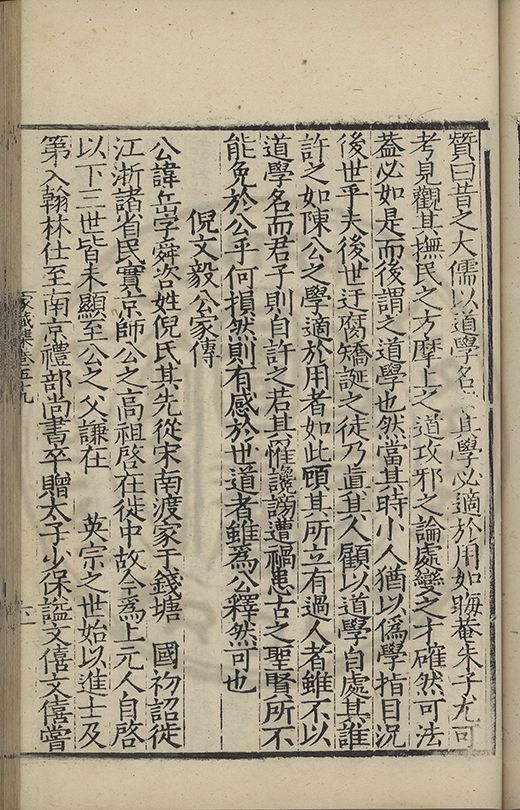 贊曰昔之大儒以道學名其學必適於用如晦菴朱子尤可
考見觀其撫民之方摩上之道攻邪之論處變之才確然可法
葢必如是而後謂之道學也然當其時小人猶以僞學指目況
後世乎夫後世迂腐矯誕之徒乃眞其人顧以道學自處其誰
許之如陳公之學適於用者如此頋其所立有過人者雖不以
道學名而君子則自許之若其惟讒謗遭禍患古之聖賢所不
能免於公乎何損然則有感於世道者雖爲公釋然可也
倪文毅公家傳
公諱岳字舜咨姓倪氏其先從宋南渡家于錢塘 國初詔徙
江浙諸省民實京師公之高祖啓在徙中故今爲上元人自啓
以下三世皆未顯至公之父謙在 英宗之世始以進士及
第入翰林仕至南京禮部尚書卒贈太子少保謚文僖文僖嘗
家藏集卷五十九